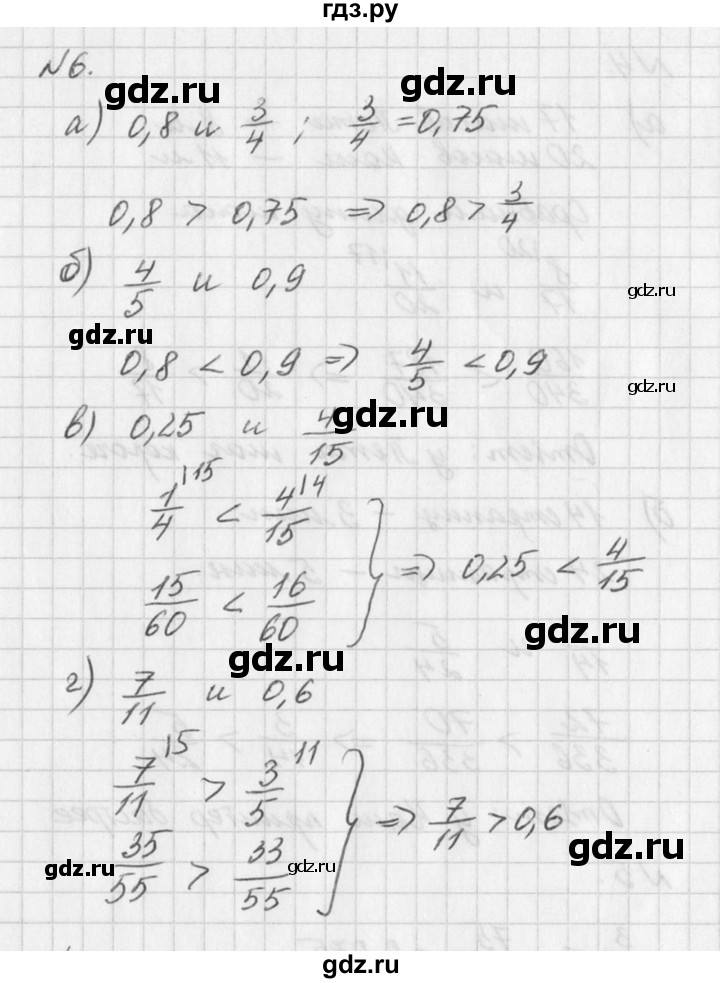 гдз.ру
№6.
gdz.ru gdz.ru
а) 0,8 и 3/4 ; 3/4 = 0,75
0,8 > 0,75 ⇒ 0,8 > 3/4
б) 4/5 и 0,9
gdz.ru
gdz.ru
0,8 < 0,9 ⇒ 4/5 < 0,9
gdz.ru
gdz.ru
в) 0,25 и 4/15
1/4 |15 < 4/15 |4
15/60 < 16/60 } ⇒ 0,25 < 4/15
gdz.ru
gdz.ru
г) 7/11 и 0,6
7/11 |5 > 3/5 |11
35/55 > 33/55 } ⇒ 7/11 > 0,6
gdz.ru
gdz.ru gdz.ru
gdz.ru